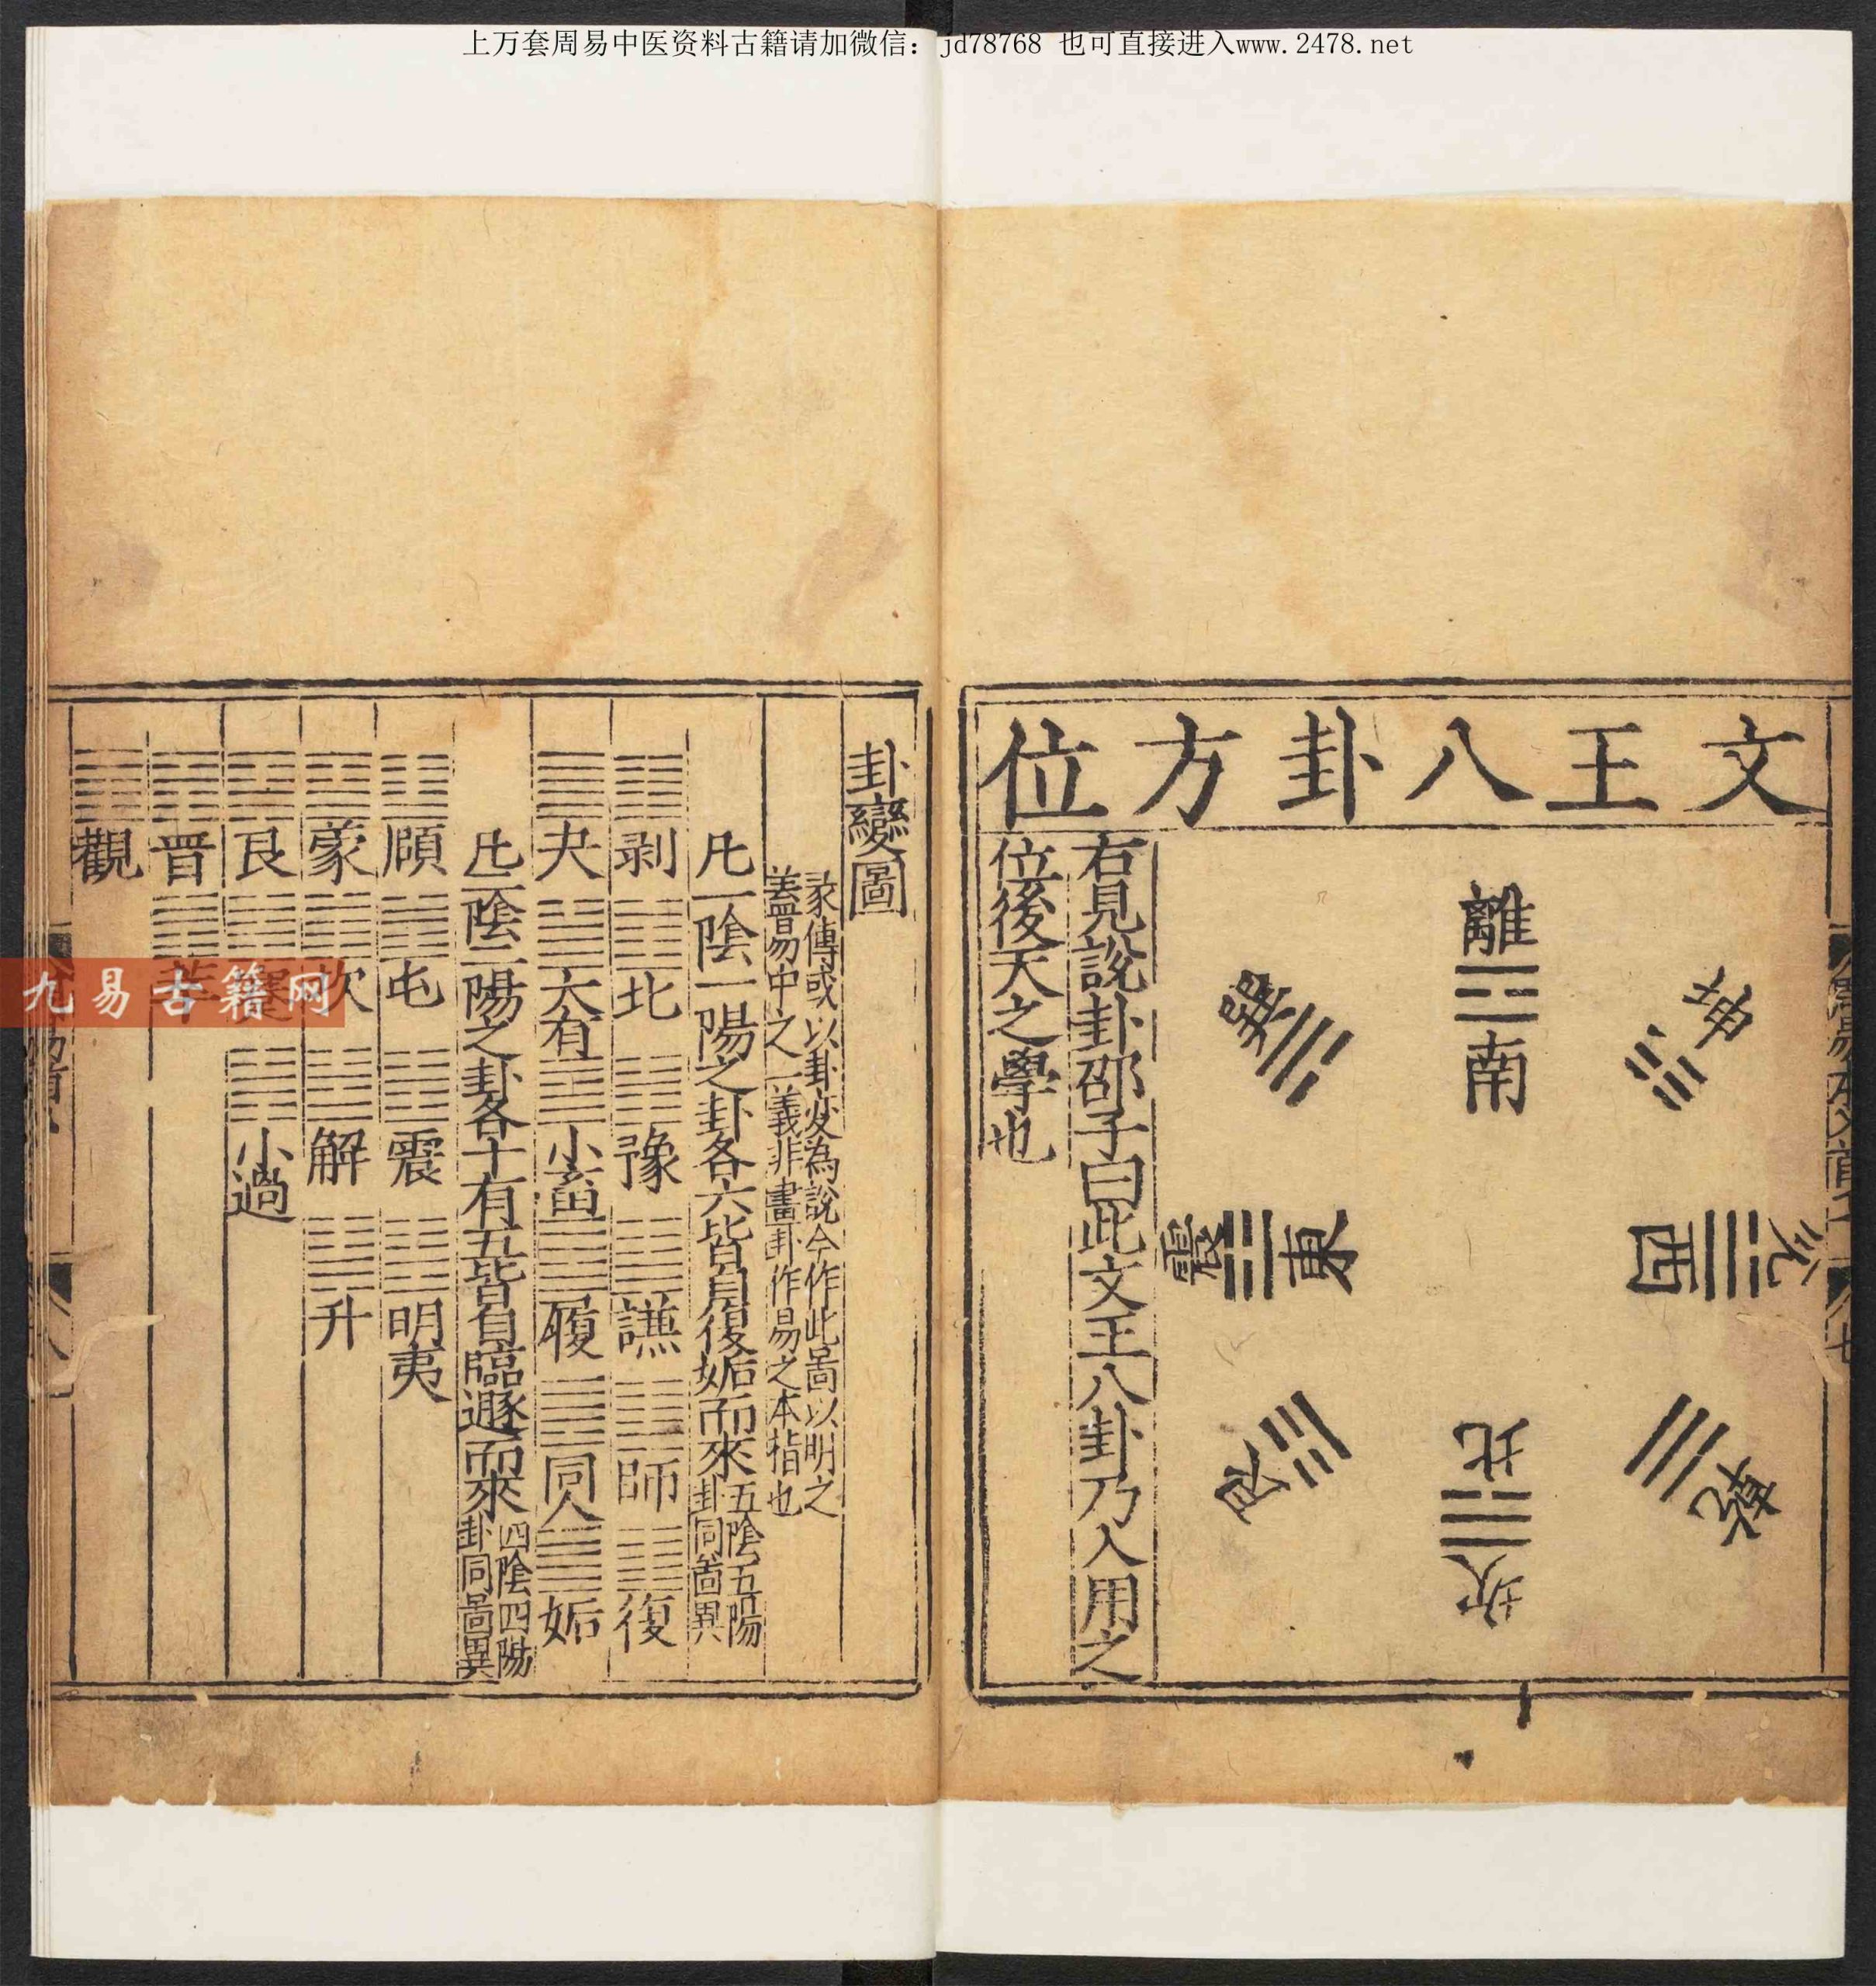 上万套周易中医资料古籍请加微信：jd78768 也可直接进入www.2478.net
文王八卦方位
離
南
坤
兌
西
乾
北
坎
艮
東
震
巽
右見說卦邵子曰此文王八卦乃入用之
位後天之學也
卦變圖
彖傳或以卦变為說今作此啚以明之
盖易中之一義非畫卦作易之本指也
凡一陰一陽之卦各六皆自復姤而來
五陰五陽
卦同啚異
剥 比 豫 謙 師 復
夬 大有 小畜 履 同人 姤
凡二陰二陽之卦各十有五皆自臨遯而來
四陰四陽
卦同啚異
頤 屯 震 明夷
蒙 坎 解 升
艮 蹇 小過
晋 萃
觀
九易古籍网